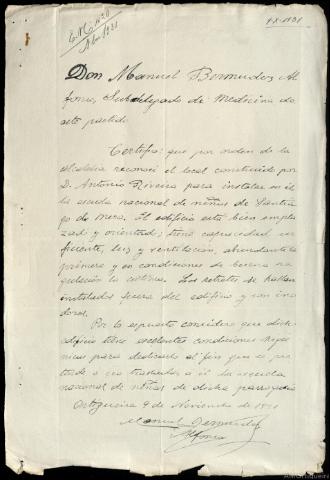 E.M. 1931
9-X-1931
Don Manuel Bermudez Al-
fonso, Subdelegado de Medicina de
este partido
Certifica: que por orden de la
Alcaldia reconoci el local construido por
D. Antonio Riveira para instalar en él
la escuela nacional de niñas de Santia-
go de Mera. El edificio está bien empla-
zado y orientado; tiene capacidad su-
ficiente, luz y ventilación, abundante la
primera y en condiciones de buena re-
gulación la última. Los retretes se hallan
instalados fuera del edificio y son ino-
doros.
Por lo expuesto considero que dicho
edificio tiene excelentes condiciones higie-
nicas para dedicarlo al fin que se pre-
tende o sea trasladar a él la escuela
nacional de niñas de dicha parroquia
Ortigueira 9 de Noviembre de 1931
Manuel Bermudez
Alfonso